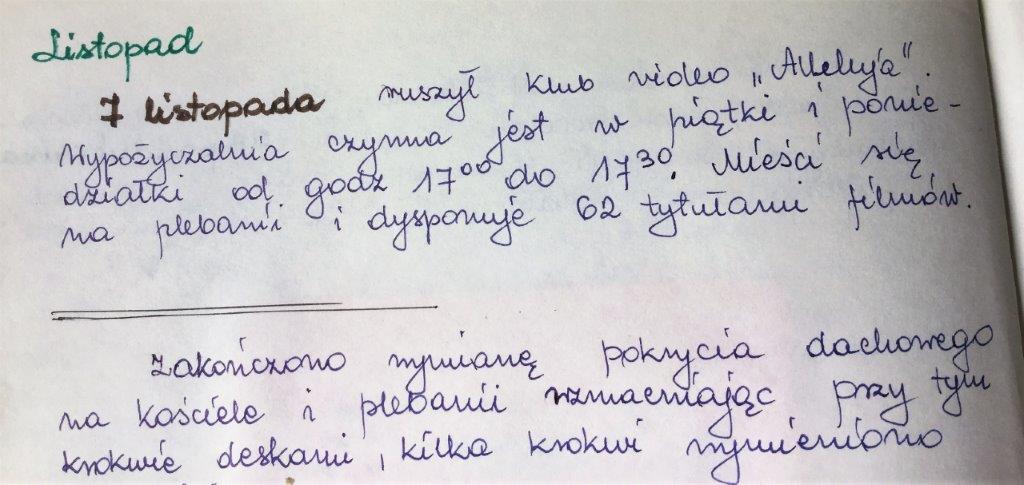 Listopad
7 listopada ruszył klub video „Alleluja".
Wypożyczalnia czynna jest w piątki i ponie-
działki od godz 17⁰⁰ do 17³⁰. Mieści się
na plebanii i dysponuje 62 tytułami filmów.
Zakończono wymianę pokrycia dachowego
na kościele i plebanii wzmacniając przy tym
krokwie deskami, kilka krokwi wymieniono